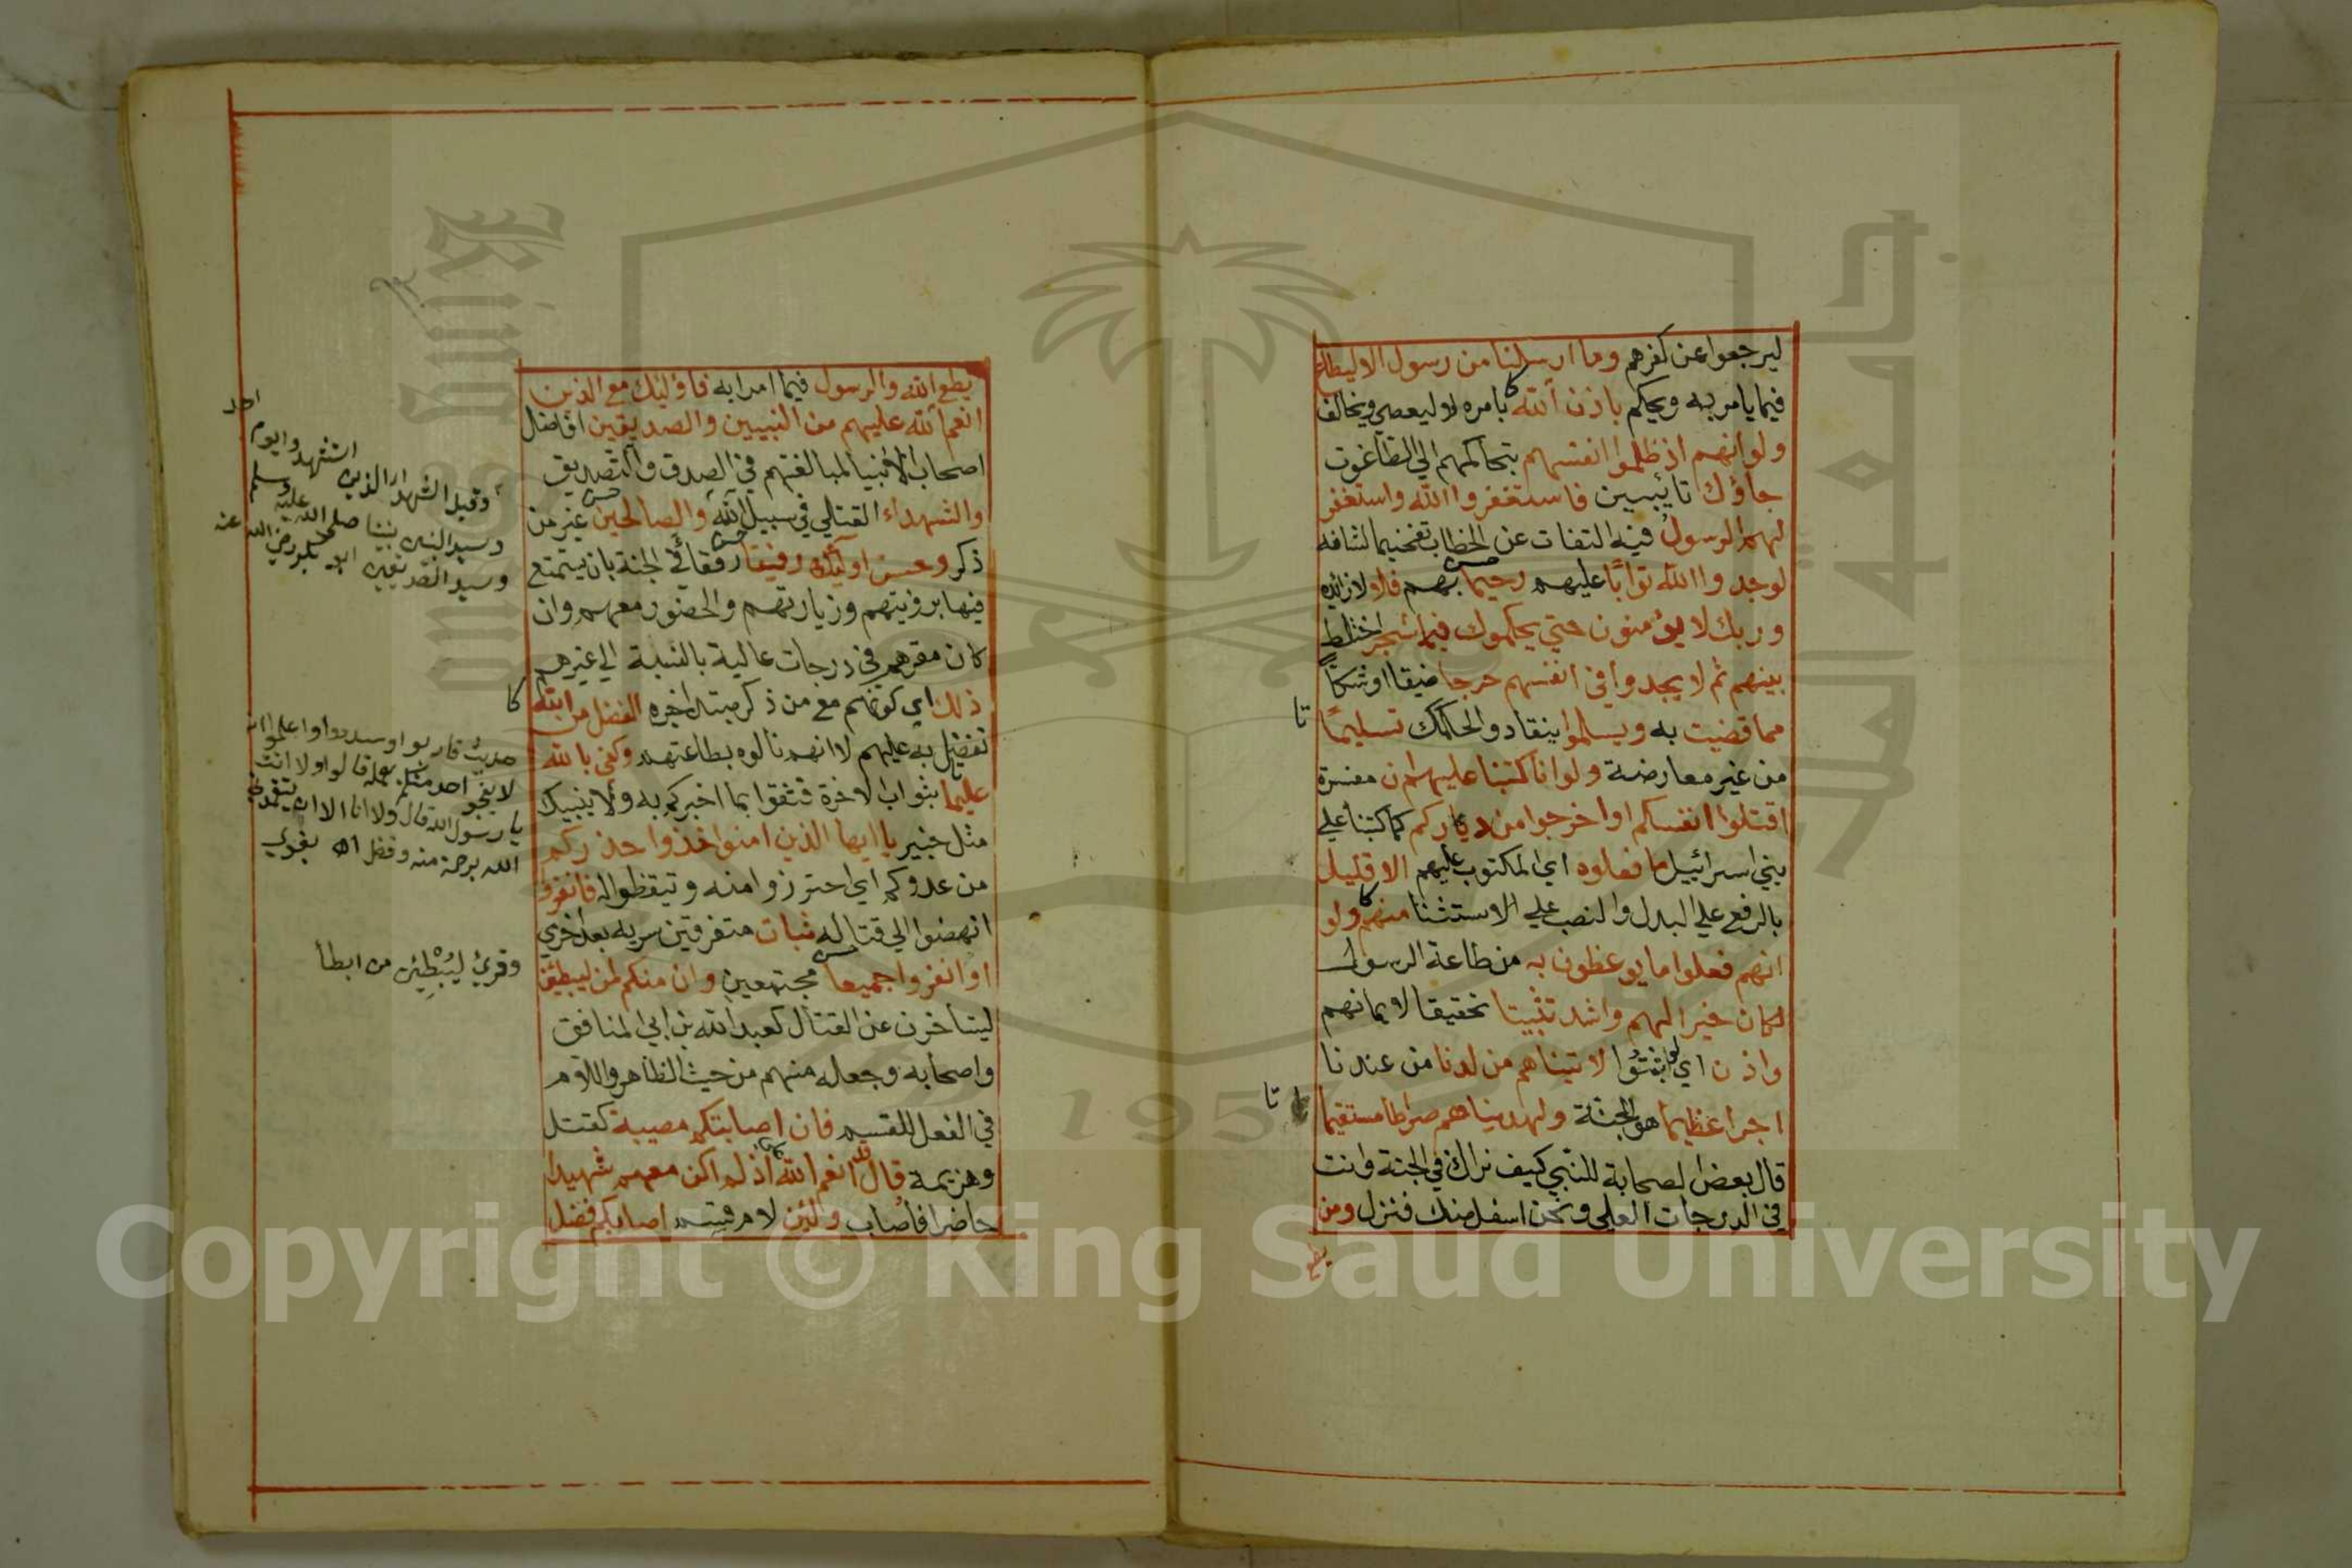 ليرجعوا عن كفرهم وما ارسلنا من رسول الا ليطاع
فيما يامر به ويحكم باذن الله بامره لا ليعصي ويخالف
ولو انهم اذ ظلموا انفسهم بتحاكمهم الي الطاغوت
جاؤك تايبين فاستغفروا الله واستغفر
لهم الرسول فيه التفات عن الخطاب تفخيما لشانه
لوجدوا الله توابا عليهم رحيما بهم فلا ولا زائده
وربك لا يؤمنون حتي يحكموك فيما شجر اختلط
بينهم ثم لا يجدوا في انفسهم حرجا ضيقا او شكا
مما قضيت به ويسلموا ينقادوا لحكمك تسليما
من غير معارضة ولو انا كتبنا عليهم ان مفسرة
اقتلوا انفسكم او اخرجوا من دياركم كما كتبنا علي
بني اسرائيل ما فعلوه اي المكتوب عليهم الا قليل
بالرفع علي البدل والنصب علي الاستثنا منهم ولو
انهم فعلوا ما يوعظون به من طاعة الرسول
لكان خيرا لهم واشد تثبيتا تحقيقا لايمانهم
واذن اي لو ثبتوا لاتيناهم من لدنا من عندنا
اجرا عظيما هو الجنة ولهديناهم صراطا مستقيما
قال بعض الصحابة للنبي كيف نراك في الجنة وانت
في الدرجات العلي ونحن اسفل منك فنزل ومن
يطع
يطع الله والرسول فيما امرا به فاؤليك مع الذين
انعم الله عليهم من النبيين والصديقين افاضل
اصحاب الانبيا لمبالغتهم في الصدق والتصديق
والشهداء القتلي في سبيل الله والصالحين غير من
ذكر وحسن اوليك رفيقا رفقا في الجنة بان يتمتع
فيها برؤيتهم وزيارتهم والحضور معهم وان
كان مقرهم في درجات عالية بالنسبة الي غيرهم
ذلك اي كونهم مع من ذكر مبتدا خبره الفضل من الله
تفضل به عليهم لا انهم نالوه بطاعتهم وكفي بالله
عليما بثواب الاخرة فثقوا بما اخبركم به ولا ينبيك
مثل خبير يا ايها الذين امنوا خذوا حذركم
من عدوكم اي احترزوا منه وتيقظوا له فانفروا
انهضوا الي قتاله ثبات متفرقين سرية بعد اخري
او انفروا جميعا مجتمعين وان منكم لمن ليبطئن
ليتاخرن عن القتال كعبد الله بن ابي المنافق
واصحابه وجعله منهم من حيث الظاهر واللام
في الفعل للقسم فان اصابتكم مصيبة كقتل
وهزيمة قال قد انعم الله علي اذ لم اكن معهم شهيدا
حاضرا فاصاب ولئن لام قسم اصابكم فضل
وقيل الشهدا الذين استشهدوا يوم احد
وسيد النبيين نبينا صلي الله عليه وسلم
وسيد الصديقين ابو بكر رضي الله عنه
حديث قاربوا وسددوا واعلموا انه
لا ينجو احد منكم بعمله قالوا ولا انت
يا رسول الله قال ولا انا الا ان يتغمدني
الله برحمة منه وفضل اه بغوي
وقرئ ليبطئن من ابطا